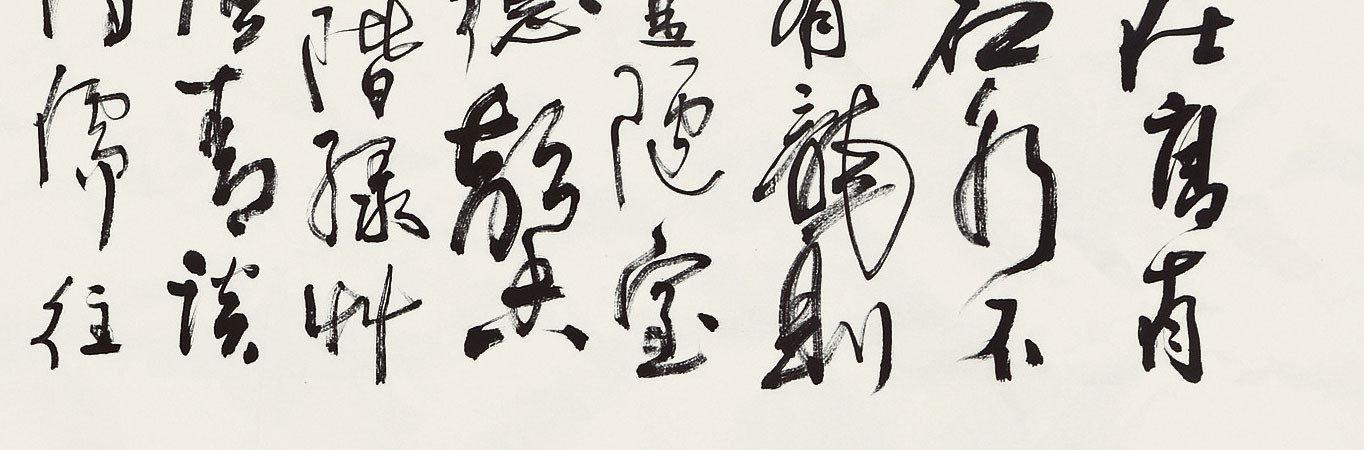 在高有
名水不
有龍則
是陋室
德馨
階綠艸
青談
儒往